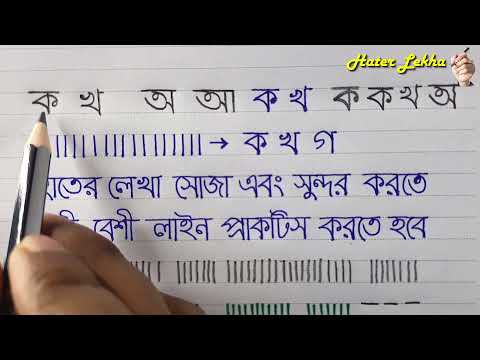 Hater Lekha
ক খ অ আ ক খ ক ক খ অ
→ ক খ গ
লেখা সোজা এবং সুন্দর করতে
বেশী লাইন প্রাকটিস করতে হবে